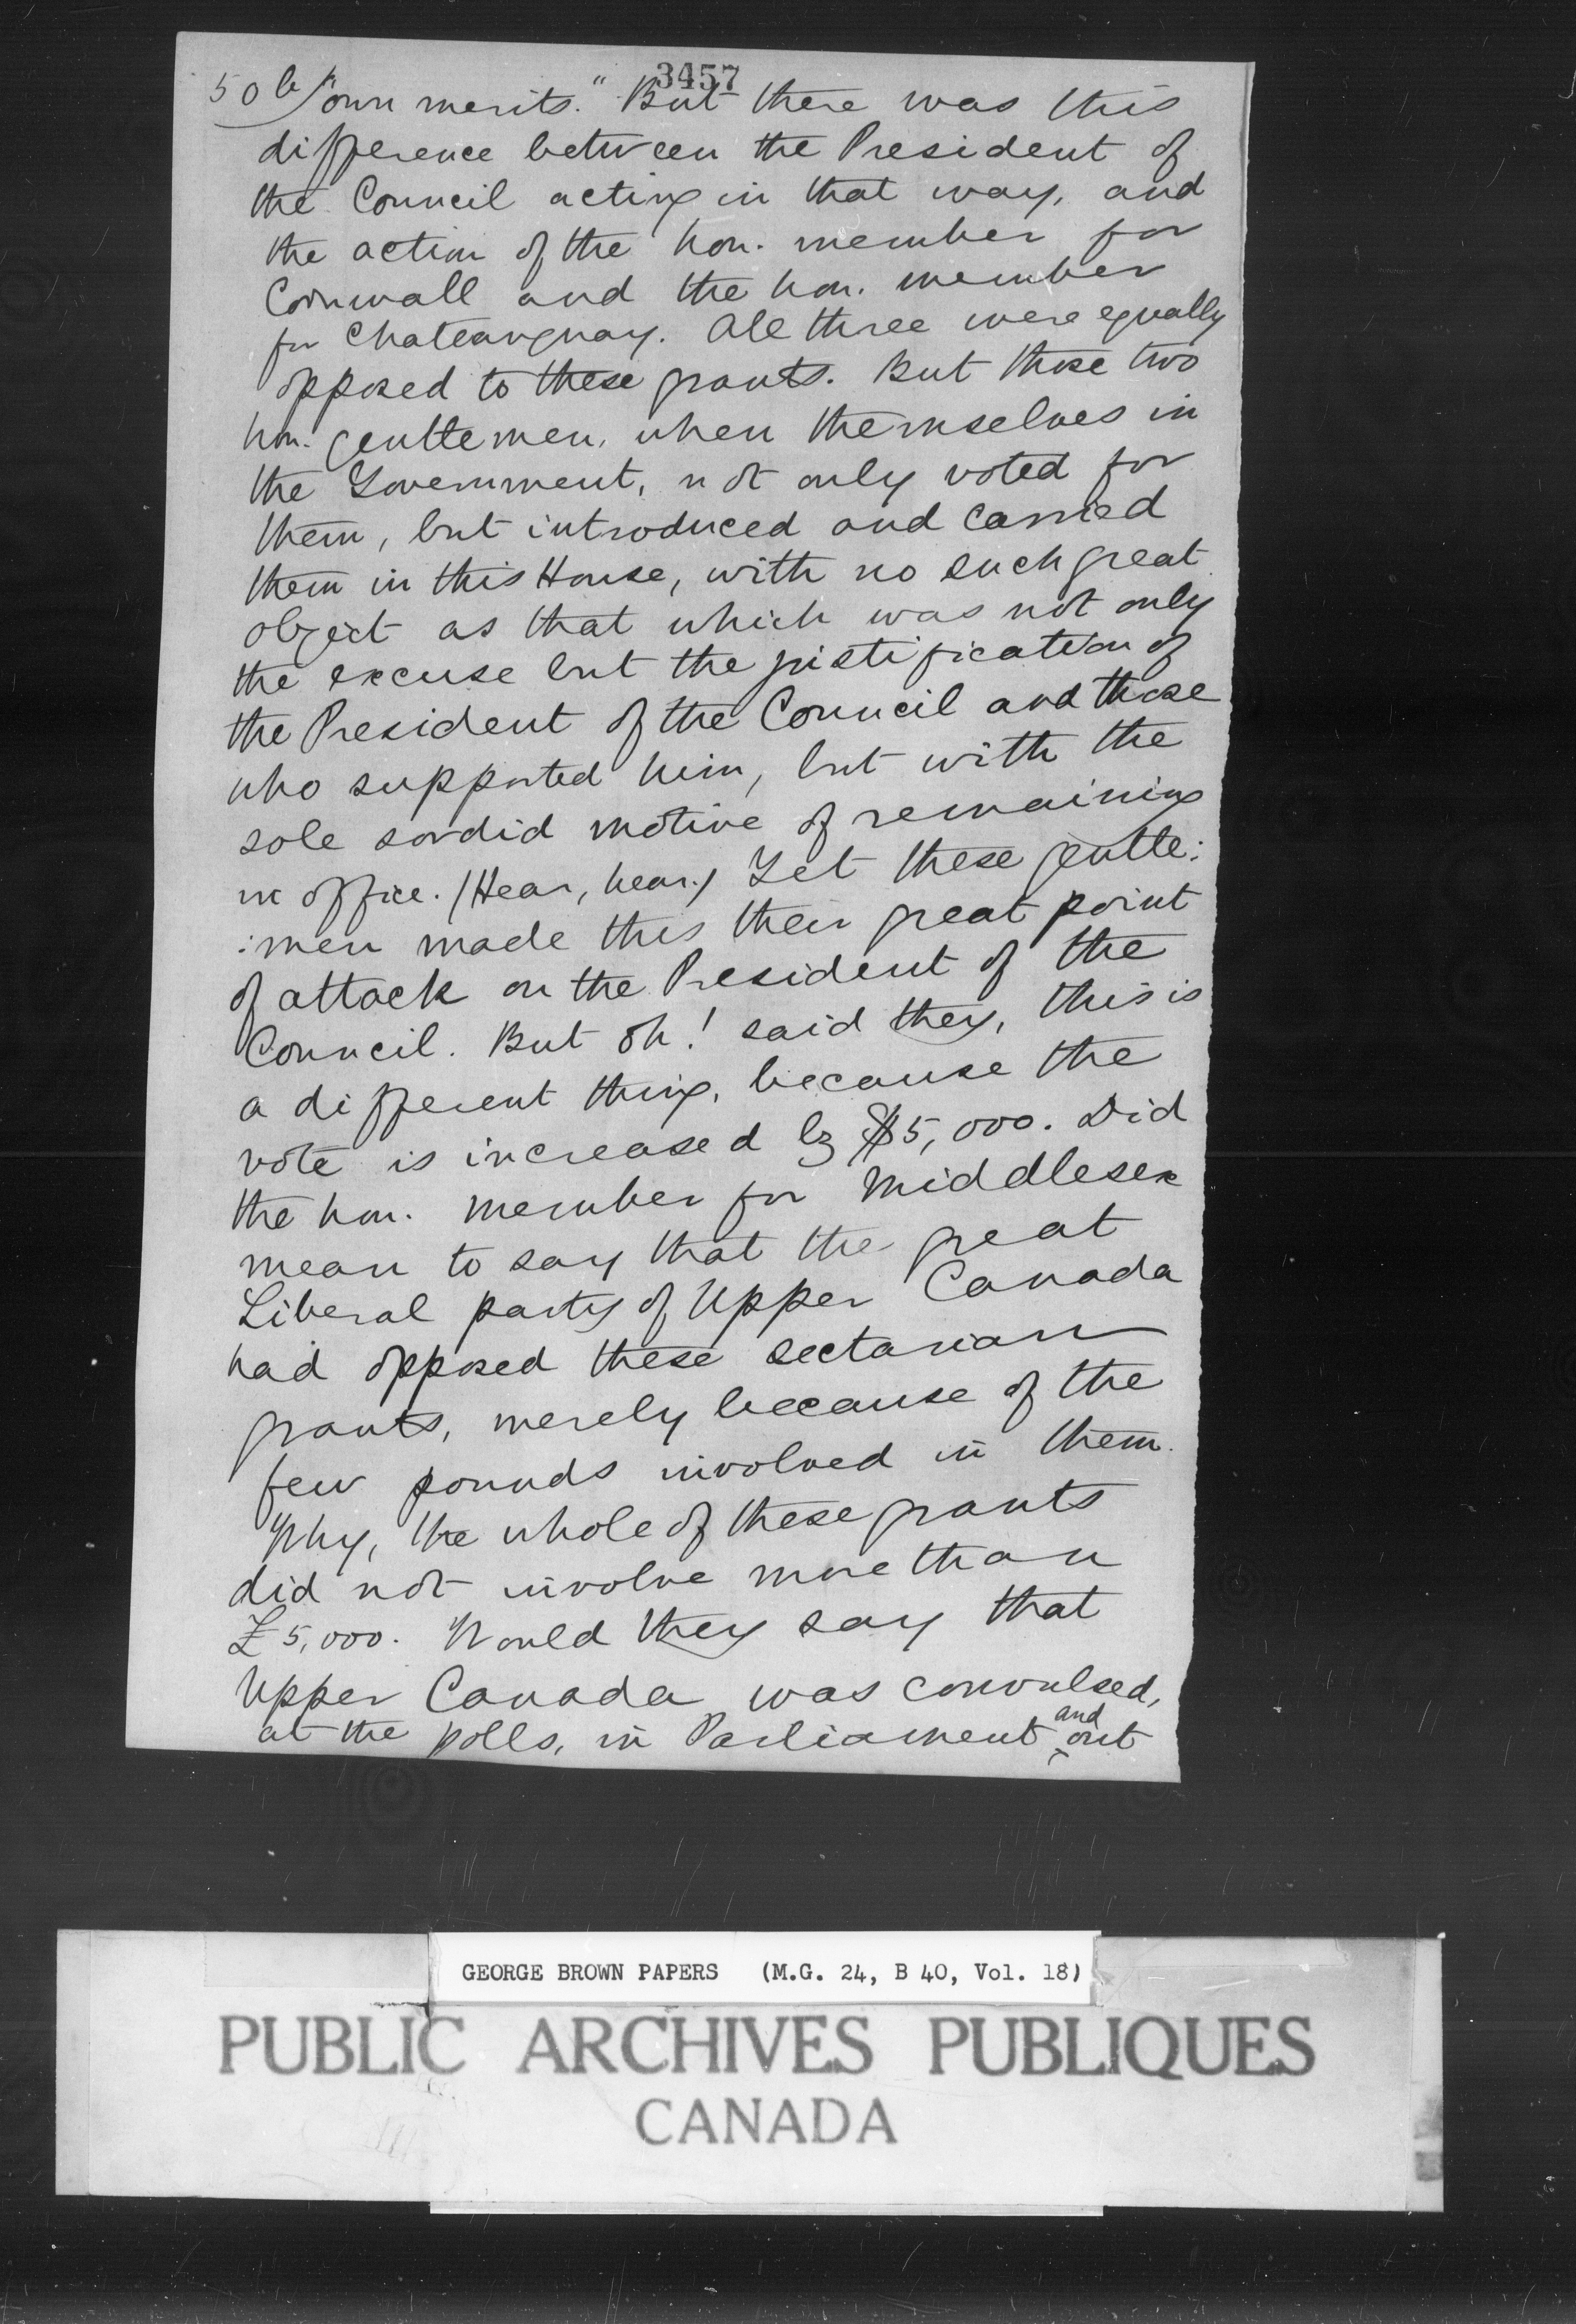 3457
50b/ "own merits." But there was this
difference between the President of
the Council acting in that way, and
the action of the hon. member for
Cornwall and the hon. member
for Chateauguay. All three were equally
opposed to these grants. But those two
hon. gentlemen, when themselves in
the Government, not only voted for
them, but introduced and carried
them in this House, with no such great
object as that which was not only
the excuse but the justification of
the President of the Council and those
who supported him, but with the
sole sordid motive of remaining
in office. (Hear, hear.) Yet these gentle:
:men made this their great point
of attack on the President of the
Council. But oh! said they, this is
a different thing, because the
vote is increased by $5,000. Did
the hon. member for Middlesex
mean to say that the great
Liberal party of Upper Canada
had opposed these sectarian
grants, merely because of the
few pounds involved in them.
Why, the whole of these grants
did not involve more than
£5,000. Would they say that
Upper Canada was convulsed,
at the polls, in Parliament and out
GEORGE BROWN PAPERS (M.G. 24, B 40, Vol. 18)
PUBLIC ARCHIVES PUBLIQUES
CANADA